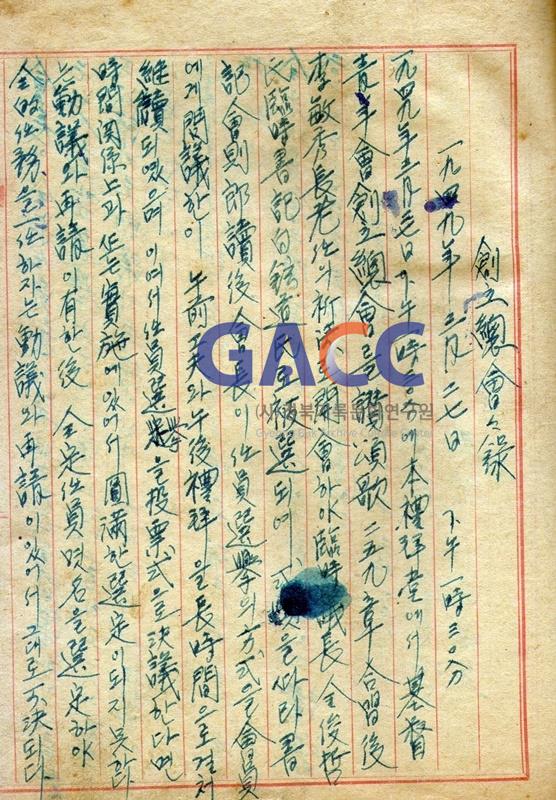 創立總會々錄
一九四九年 三月 二七日 下午 一時三〇分
一九四九年三月二七日下午一時三〇分에本禮拜堂에서基督
青年會創立總會를讚頌歌二五九章合唱後
李敏秀長老任의祈禱로開會하야臨時議長 全俊哲
氏臨時書記白 被選되여 을따라書
記會則郎讀後會長이任員選擧의方式을會員
에게問議한이 午前工夫와午後禮拜을長時間으로걸처
繼續되였으며 이여서任員選擧을投票式으로決議한다면
時間関係上과 또는實施에있어서圓滿한選定이되지못한다
는動議와再請이有한後 全定任員몇名을選定하야
全的任務을一任하자는動議와再請이있어서그대로可決되다
GACC